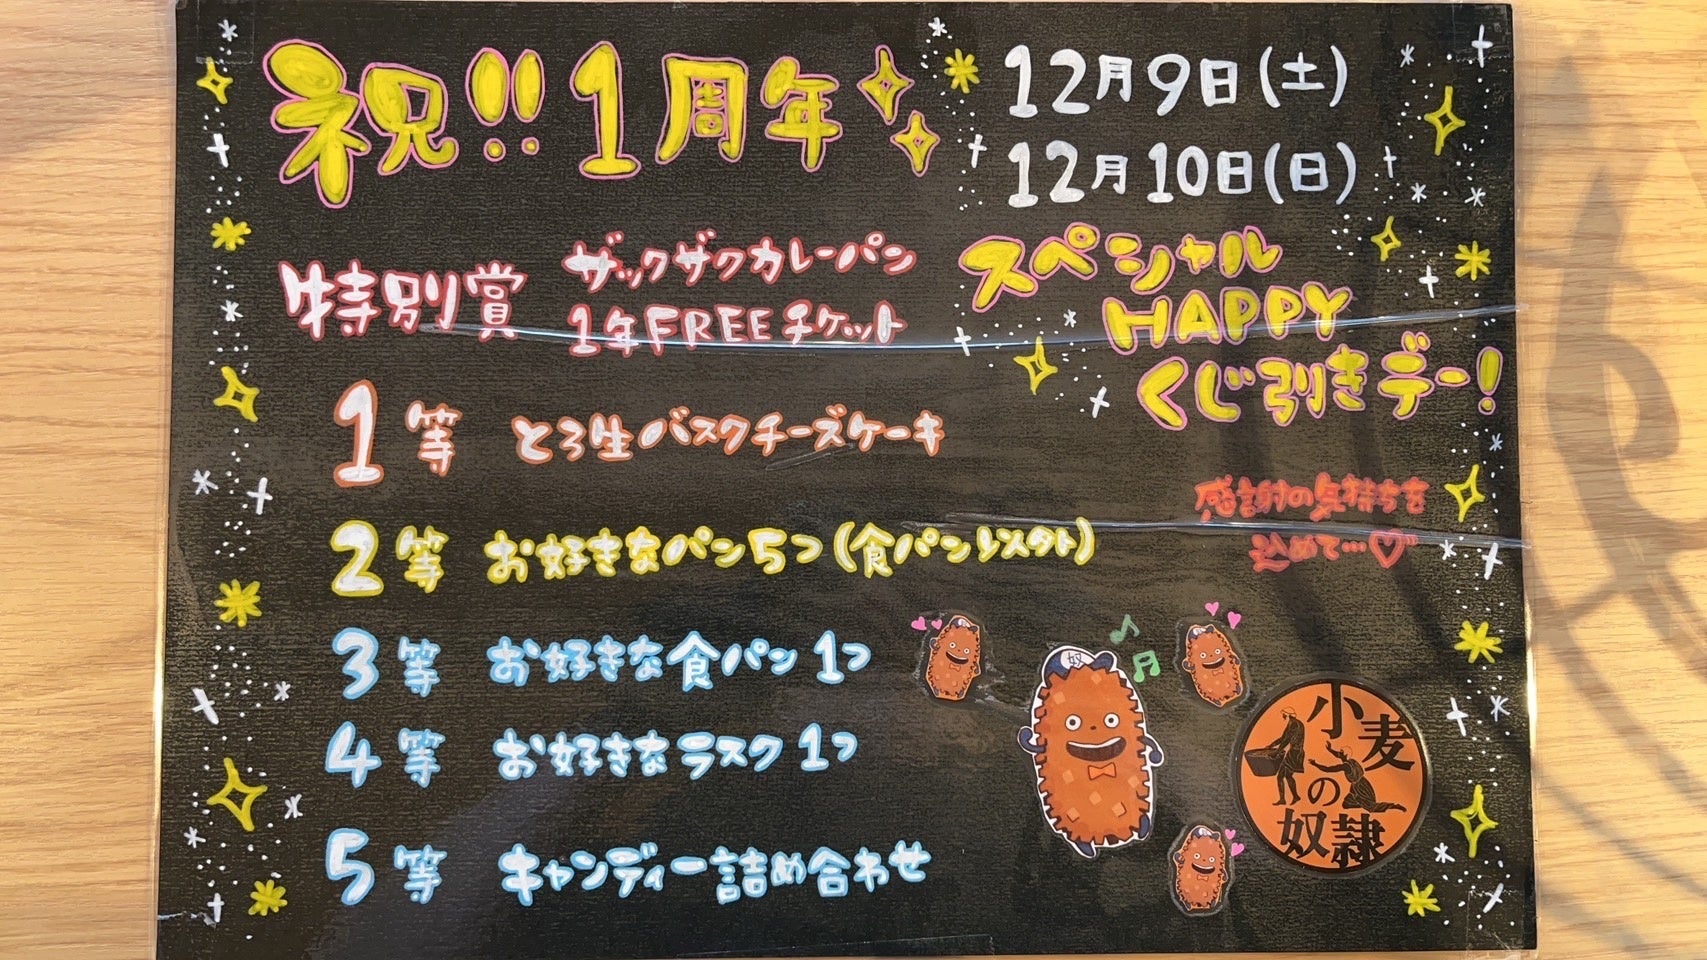 祝!! 1周年
12月9日(土)
12月10日(日)
スペシャル
HAPPY
くじ引きデー!
特別賞 ザックザクカレーパン
1年FREEチケット
1等 とろ生バスクチーズケーキ
2等 お好きなパン5つ(食パン以外)
3等 お好きな食パン1つ
4等 お好きなラスク1つ
5等 キャンディー詰め合わせ
感謝の気持ちを
込めて…♡
奴
小麦
の
奴隷